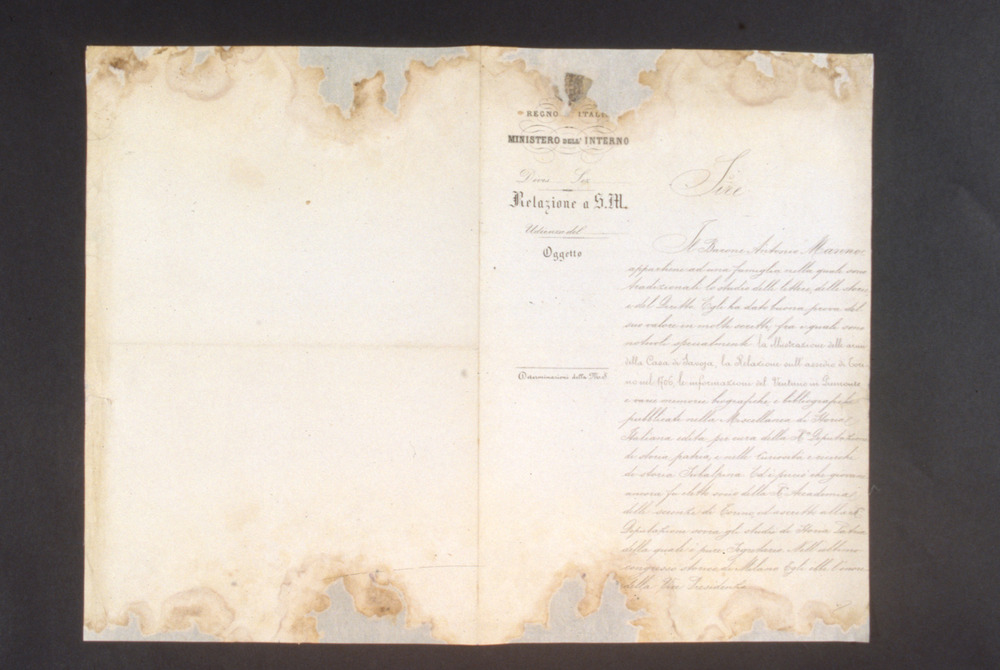 REGNO ITALI
MINISTERO DELL' INTERNO
Relazione a S.M.
Udienza del
Oggetto
Sire
Il Barone Antonio Manno
appartiene ad una famiglia nella quale sono
tradizionali lo studio delle lettere, delle storie
e del Diritto. Egli ha dato buona prova del
suo valore in molti scritti, fra i quali sono
notevoli specialmente la illustrazione delle armi
della Casa di Savoja, la Relazione sull'assedio di Tori
no nel 1706, le informazioni sul Ventuno in Piemonte
e varie memorie biografiche e bibliografiche
pubblicate nella Miscellanea di Storia
Italiana edita per cura della Rª Deputazione
di storia patria, e nelle Curiosità e ricerche
di storia Subalpina. Ed è perciò che giovane
ancora fu eletto socio della R. Accademia
delle scienze di Torino, ed ascritto alla R.
Deputazione sovra gli studi di Storia Patria
della quale è pure Segretario. Nell'ultimo
congresso storico di Milano Egli ebbe l'onore
della Vice Presidenza